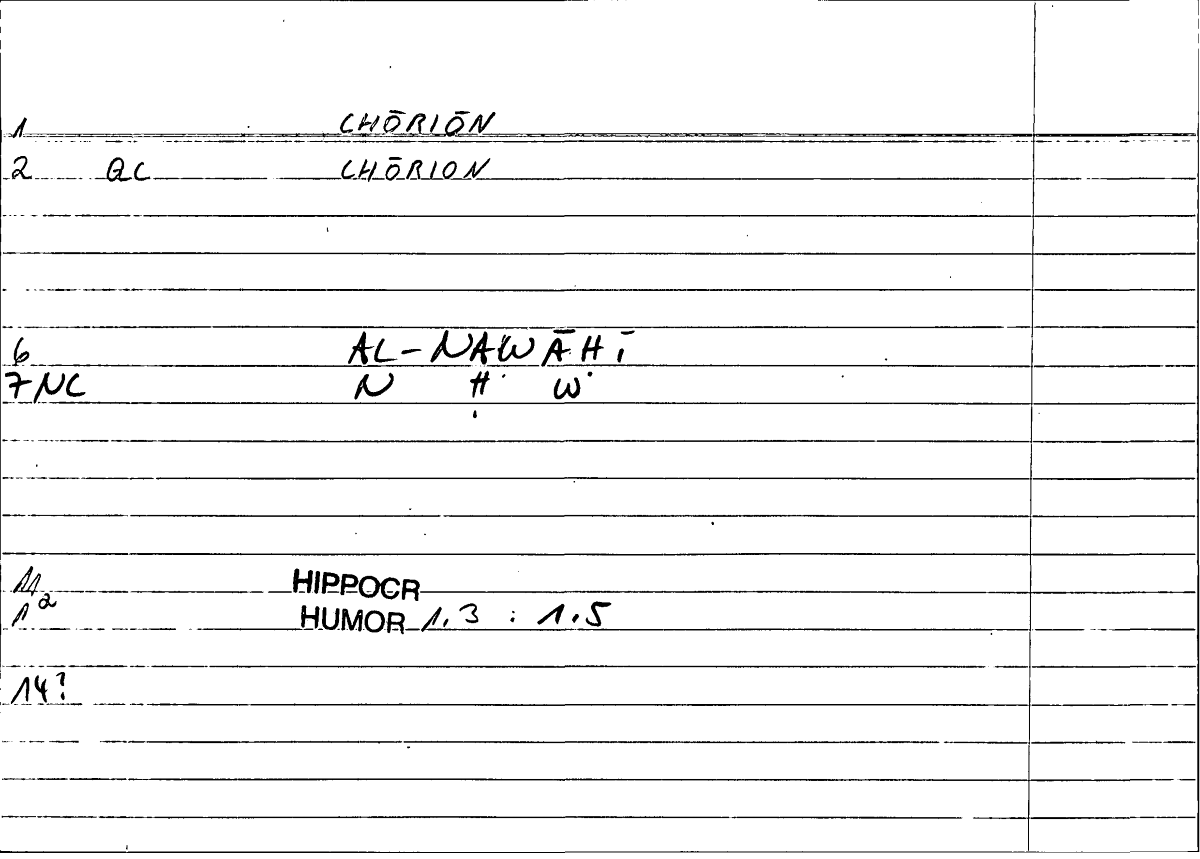 1 CHŌRIŌN
2 QC CHŌRION
6 AL-NAWĀHĪ
7 NC N Ḥ W
11 HIPPOCR
12 HUMOR 1.3 : 1.5
14?